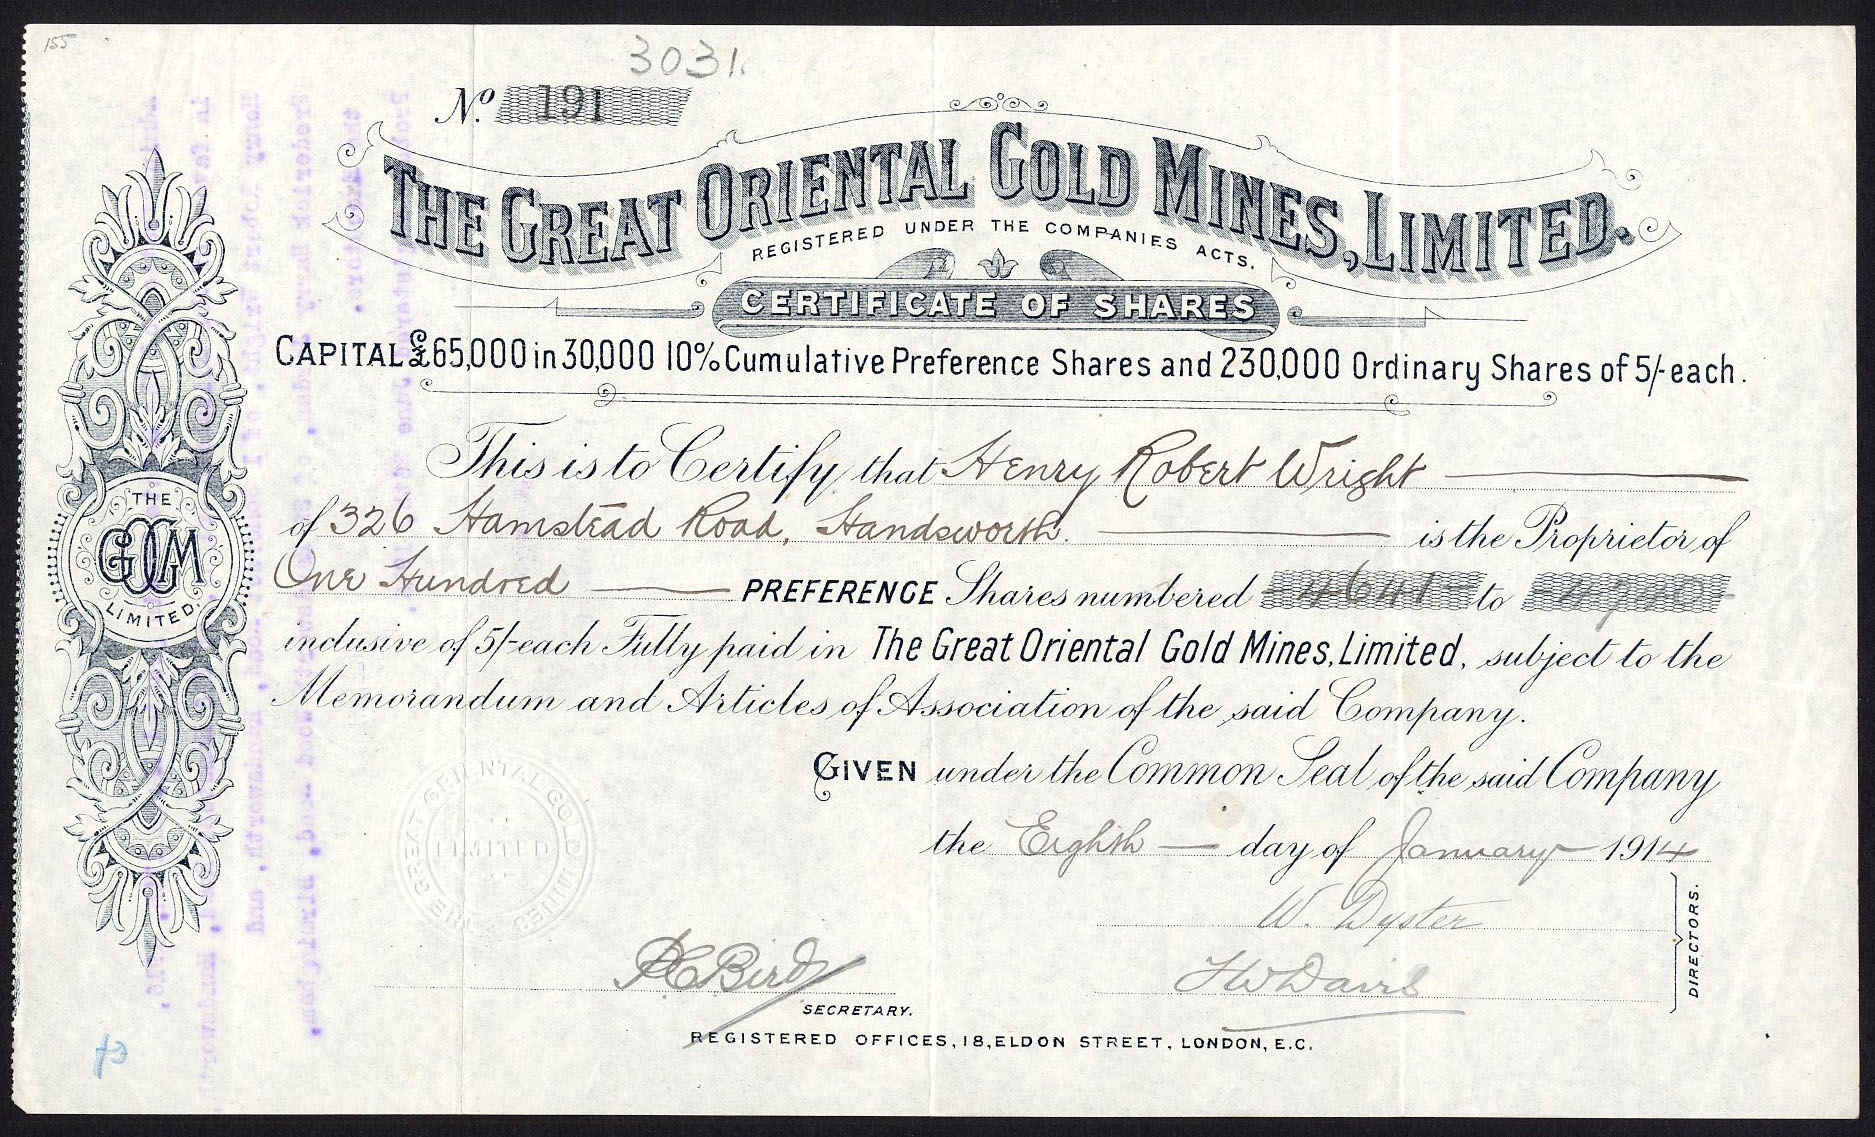 155
3031.
No. 191
THE GREAT ORIENTAL GOLD MINES, LIMITED.
REGISTERED UNDER THE COMPANIES ACTS.
CERTIFICATE OF SHARES
CAPITAL £65,000 in 30,000 10% Cumulative Preference Shares and 230,000 Ordinary Shares of 5/- each.
This is to Certify that Henry Robert Wright
of 326 Hamstead Road, Handsworth. is the Proprietor of
One Hundred PREFERENCE Shares numbered 4641 to 4740
inclusive of 5/- each Fully paid in The Great Oriental Gold Mines, Limited, subject to the
Memorandum and Articles of Association of the said Company.
GIVEN under the Common Seal of the said Company
the Eighth day of January 1914
W. Dyster
H W Davis
DIRECTORS.
HCBird
SECRETARY.
REGISTERED OFFICES, 18, ELDON STREET, LONDON, E.C.
THE
GOGM
LIMITED.
THE GREAT ORIENTAL GOLD MINES
LIMITED